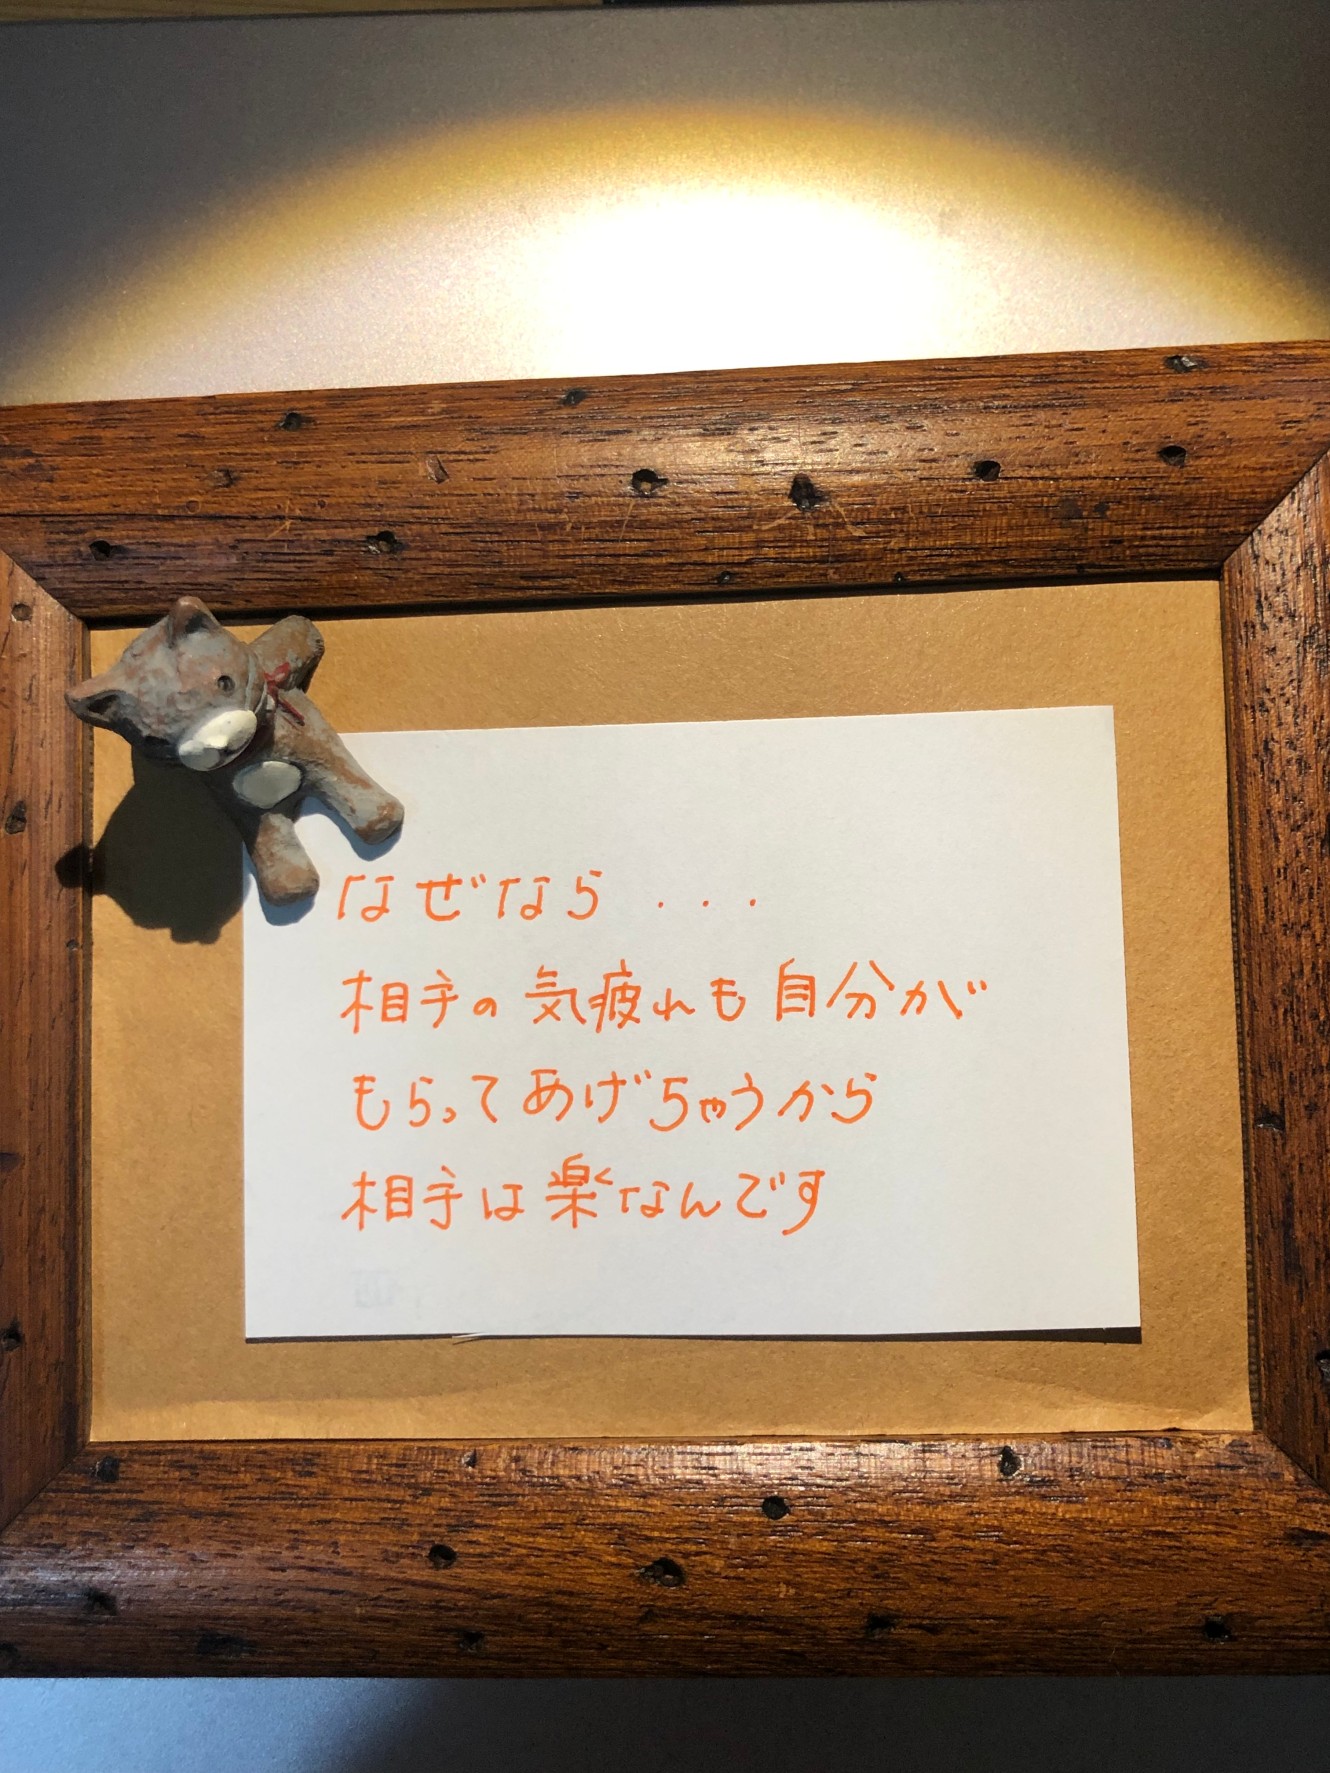 なぜなら...
相手の気疲れも自分が
もらってあげちゃうから
相手は楽なんです